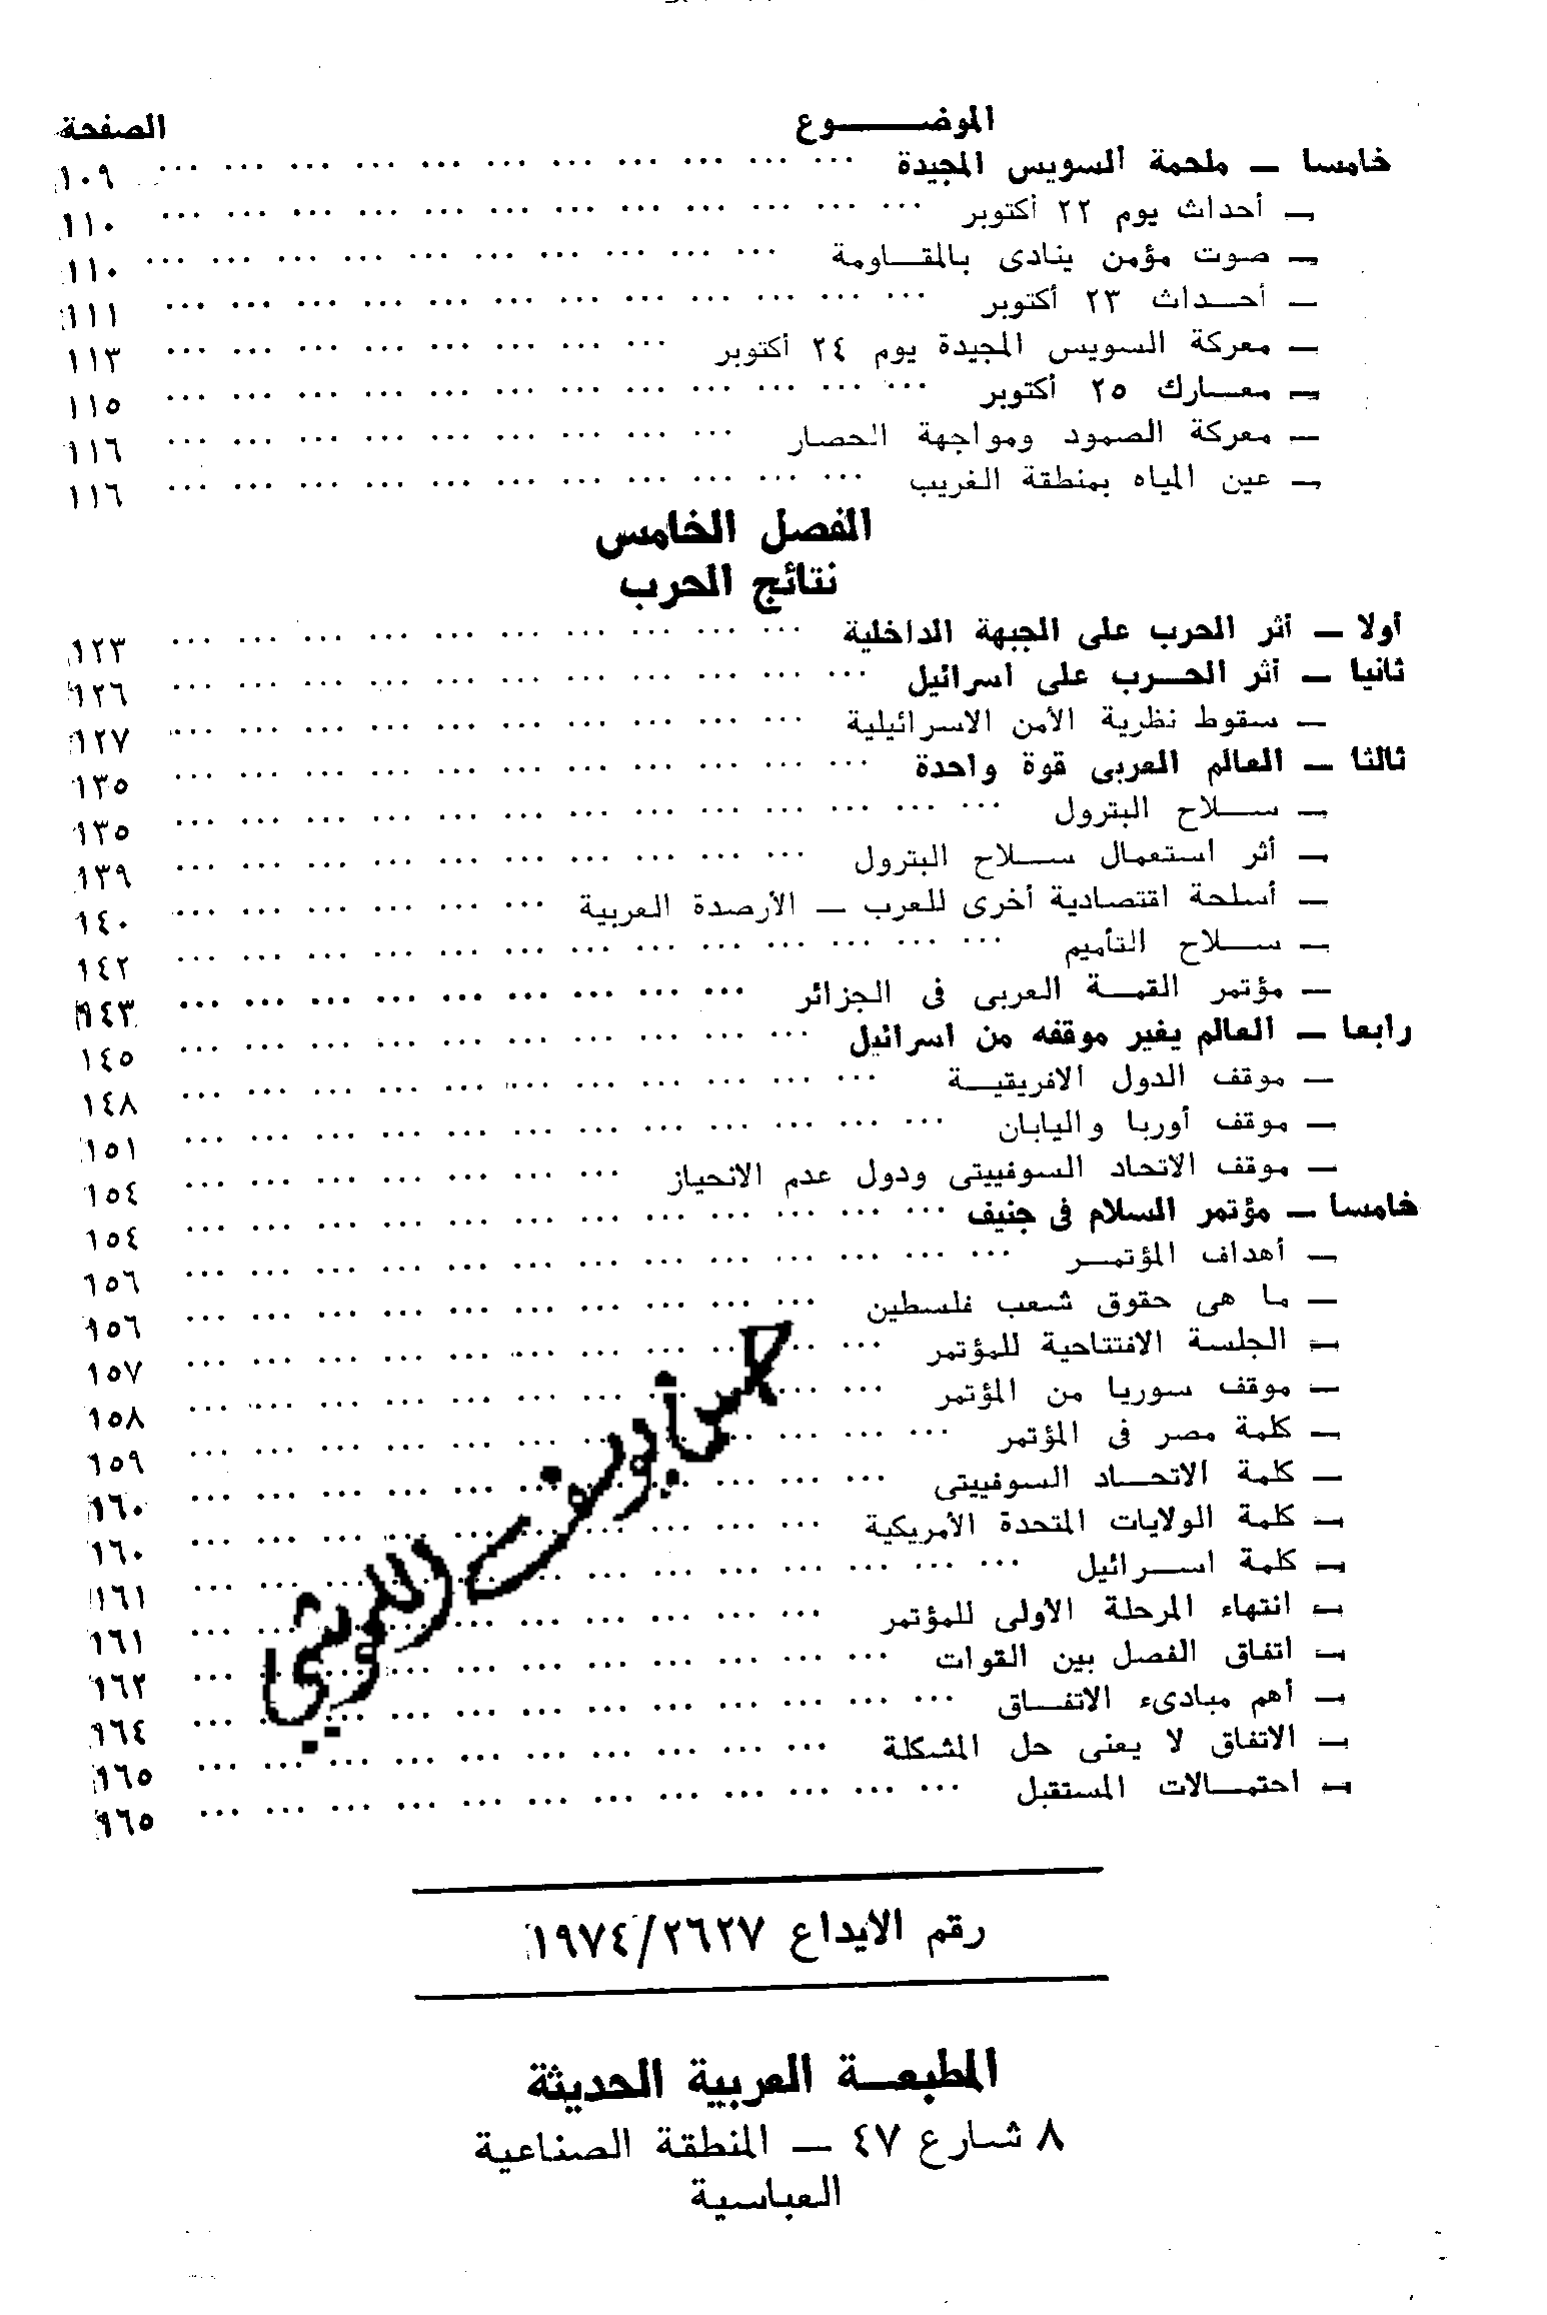 الموضـــــوع الصفحة
خامسا — ملحمة السويس المجيدة ... ١٠٩
— أحداث يوم ٢٢ أكتوبر ... ١١٠
— صوت مؤمن ينادى بالمقـــاومة ... ١١٠
— أحـــداث ٢٣ أكتوبر ... ١١١
— معركة السويس المجيدة يوم ٢٤ أكتوبر ... ١١٣
— معـــارك ٢٥ أكتوبر ... ١١٥
— معركة الصمود ومواجهة الحصار ... ١١٦
— عين المياه بمنطقة الغريب ... ١١٦
الفصل الخامس
نتائج الحرب
أولا — أثر الحرب على الجبهة الداخلية ... ١٢٣
ثانيا — أثر الحـــرب على اسرائيل ... ١٢٦
— سقوط نظرية الأمن الاسرائيلية ... ١٢٧
ثالثا — العالم العربى قوة واحدة ... ١٣٥
— ســـلاح البترول ... ١٣٥
— أثر استعمال ســـلاح البترول ... ١٣٩
— أسلحة اقتصادية أخرى للعرب — الأرصدة العربية ... ١٤٠
— ســـلاح التأميم ... ١٤٢
— مؤتمر القمـــة العربى فى الجزائر ... ١٤٣
رابعا — العالم يغير موقفه من اسرائيل ... ١٤٥
— موقف الدول الافريقيـــة ... ١٤٨
— موقف أوربا واليابان ... ١٥١
— موقف الاتحاد السوفييتى ودول عدم الانحياز ... ١٥٤
خامسا — مؤتمر السلام فى جنيف ... ١٥٤
— أهداف المؤتمـــر ... ١٥٦
— ما هى حقوق شعب فلسطين ... ١٥٦
— الجلسة الافتتاحية للمؤتمر ... ١٥٧
— موقف سوريا من المؤتمر ... ١٥٨
— كلمة مصر فى المؤتمر ... ١٥٩
— كلمة الاتحـــاد السوفييتى ... ١٦٠
— كلمة الولايات المتحدة الأمريكية ... ١٦٠
— كلمة اســـرائيل ... ١٦١
— انتهاء المرحلة الأولى للمؤتمر ... ١٦١
— اتفاق الفصل بين القوات ... ١٦٢
— أهم مبادىء الاتفـــاق ... ١٦٤
— الاتفاق لا يعنى حل المشكلة ... ١٦٥
— احتمـــالات المستقبل ... ١٦٥
رقم الايداع ١٩٧٤/٢٦٢٧
المطبعـــة العربية الحديثة
٨ شارع ٤٧ — المنطقة الصناعية
العباسية